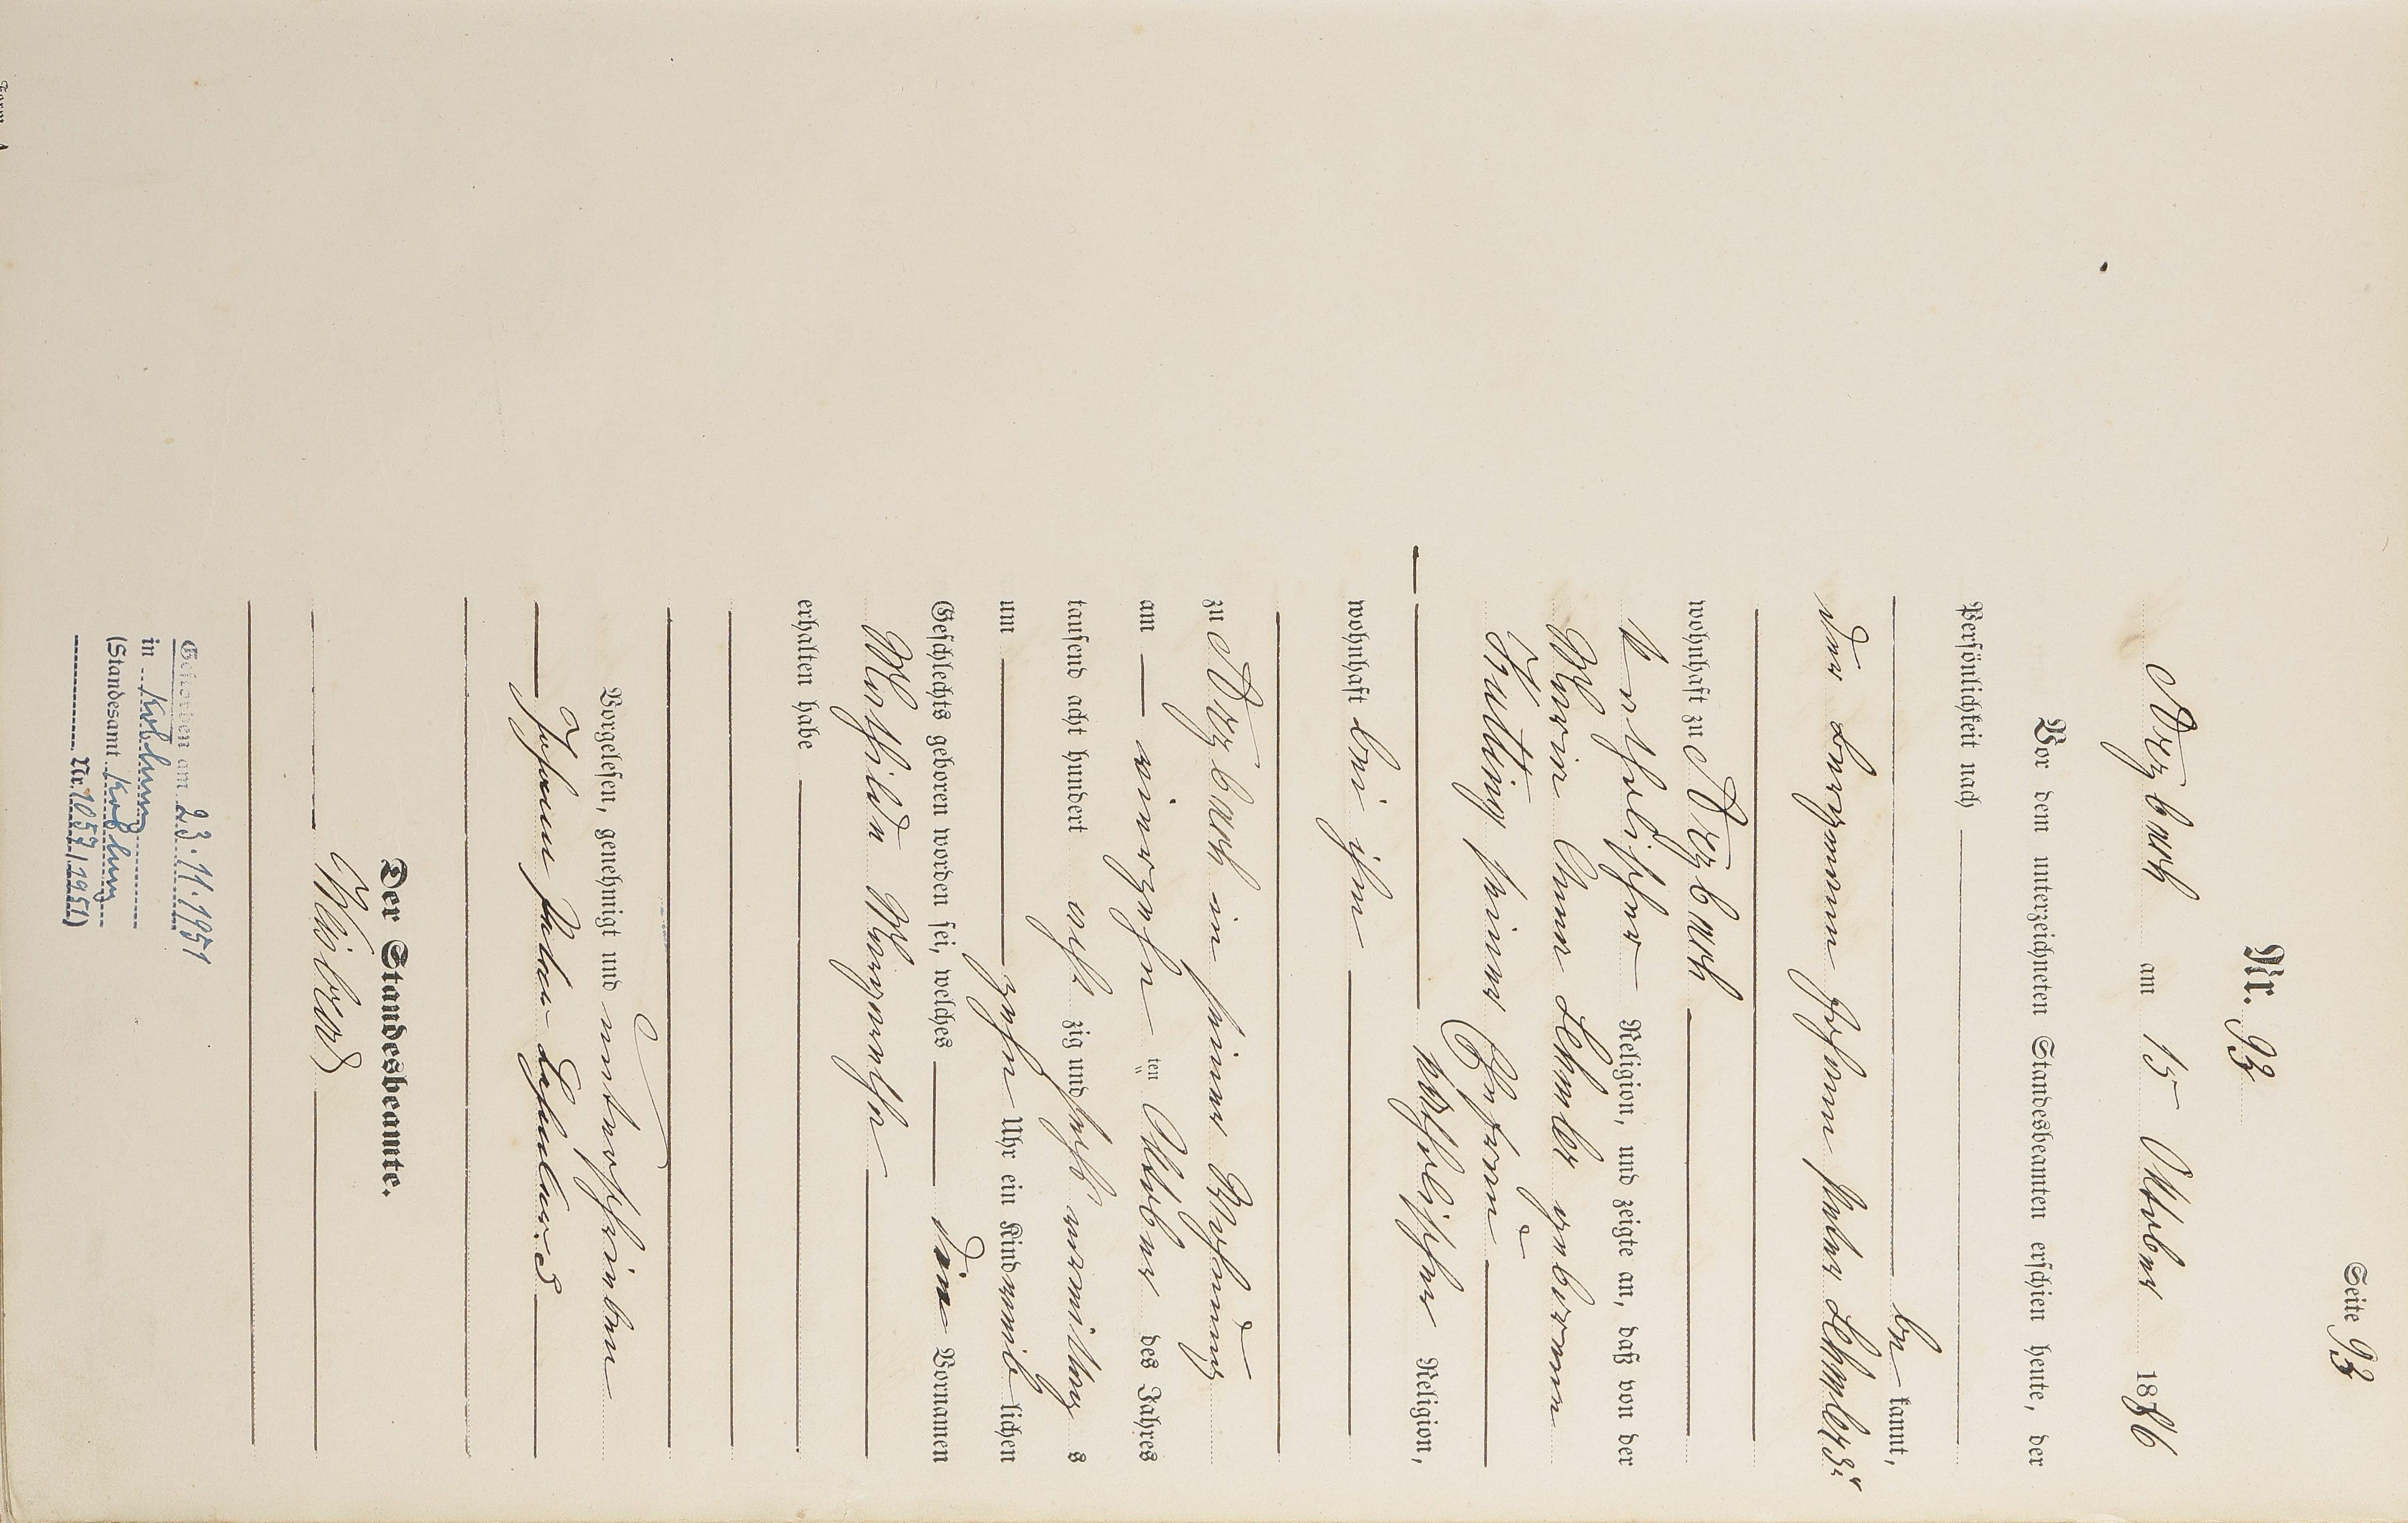 Seite 93
Nr. 93
Arzbach am 15 Oktober 1886
Vor dem unterzeichneten Standesbeamten erschien heute, der
Persönlichkeit nach
be kannt,
der Bergmann Johann Peter
wohnhaft zu Arzbach
katholischer Religion, und zeigte an, daß von der
Maria Anna geborenen
seiner Ehefrau
katholischer Religion,
wohnhaft bei ihm
zu Arzbach in seiner Wohnung
am vierzehn ten Oktober des Jahres
tausend acht hundert acht zig und sechs vormittag s
um zehn Uhr ein Kind weib lichen
Geschlechts geboren worden sei, welches die Vornamen
Mathilde Margarethe
erhalten habe
Vorgelesen, genehmigt und unterschrieben
Johann Peter
Der Standesbeamte.
Gestorben am 23.11.1951
in Koblenz
(Standesamt Koblenz
Nr. 1057/1951)